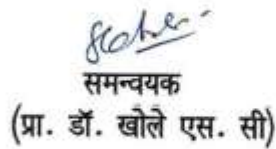 समन्वयक
(प्रा. डॉ. खोले एस. सी)